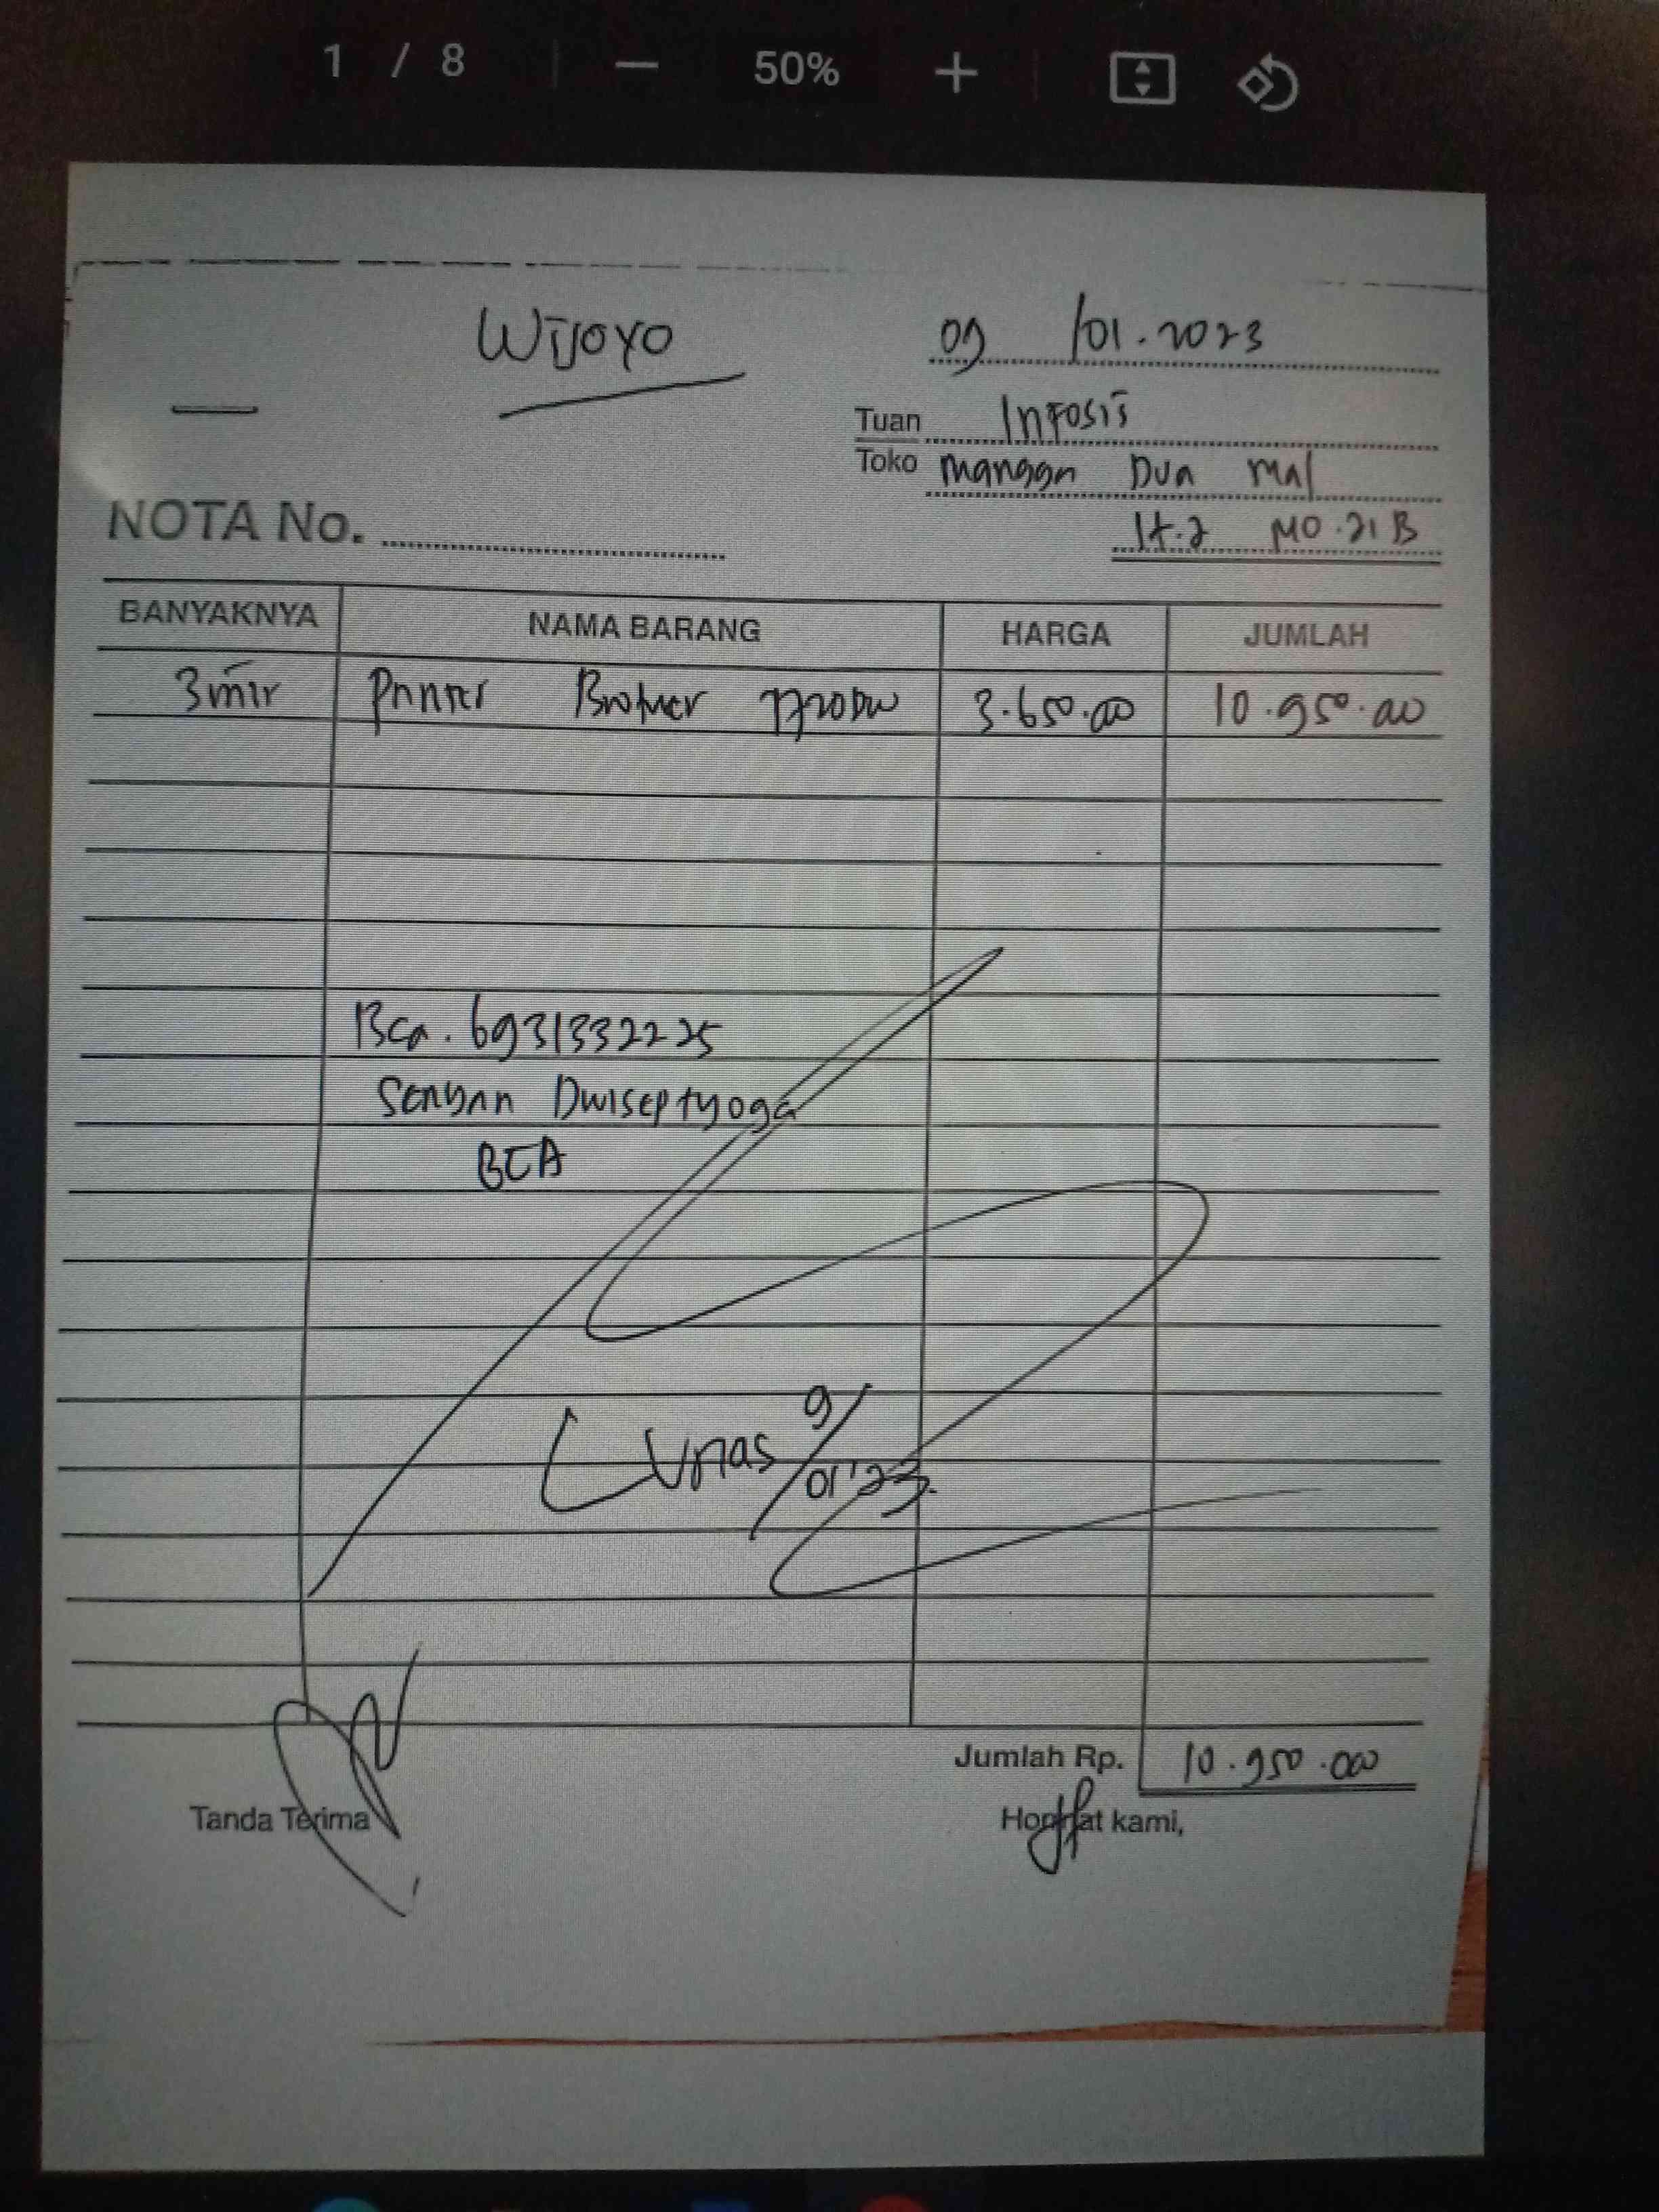 1 / 8 50%
Wijoyo
09 /01.2023
Tuan Infosis
Toko Mangga Dua Mal
lt.2 No.21B
NOTA No.
BANYAKNYA NAMA BARANG HARGA JUMLAH
3 Printer Brother 3.650.00 10.950.00
Bca. 6931332225
Dwiseptyoga
BCA
Lunas 9/01'23.
Jumlah Rp. 10.950.000
Tanda Terima
Hormat kami,